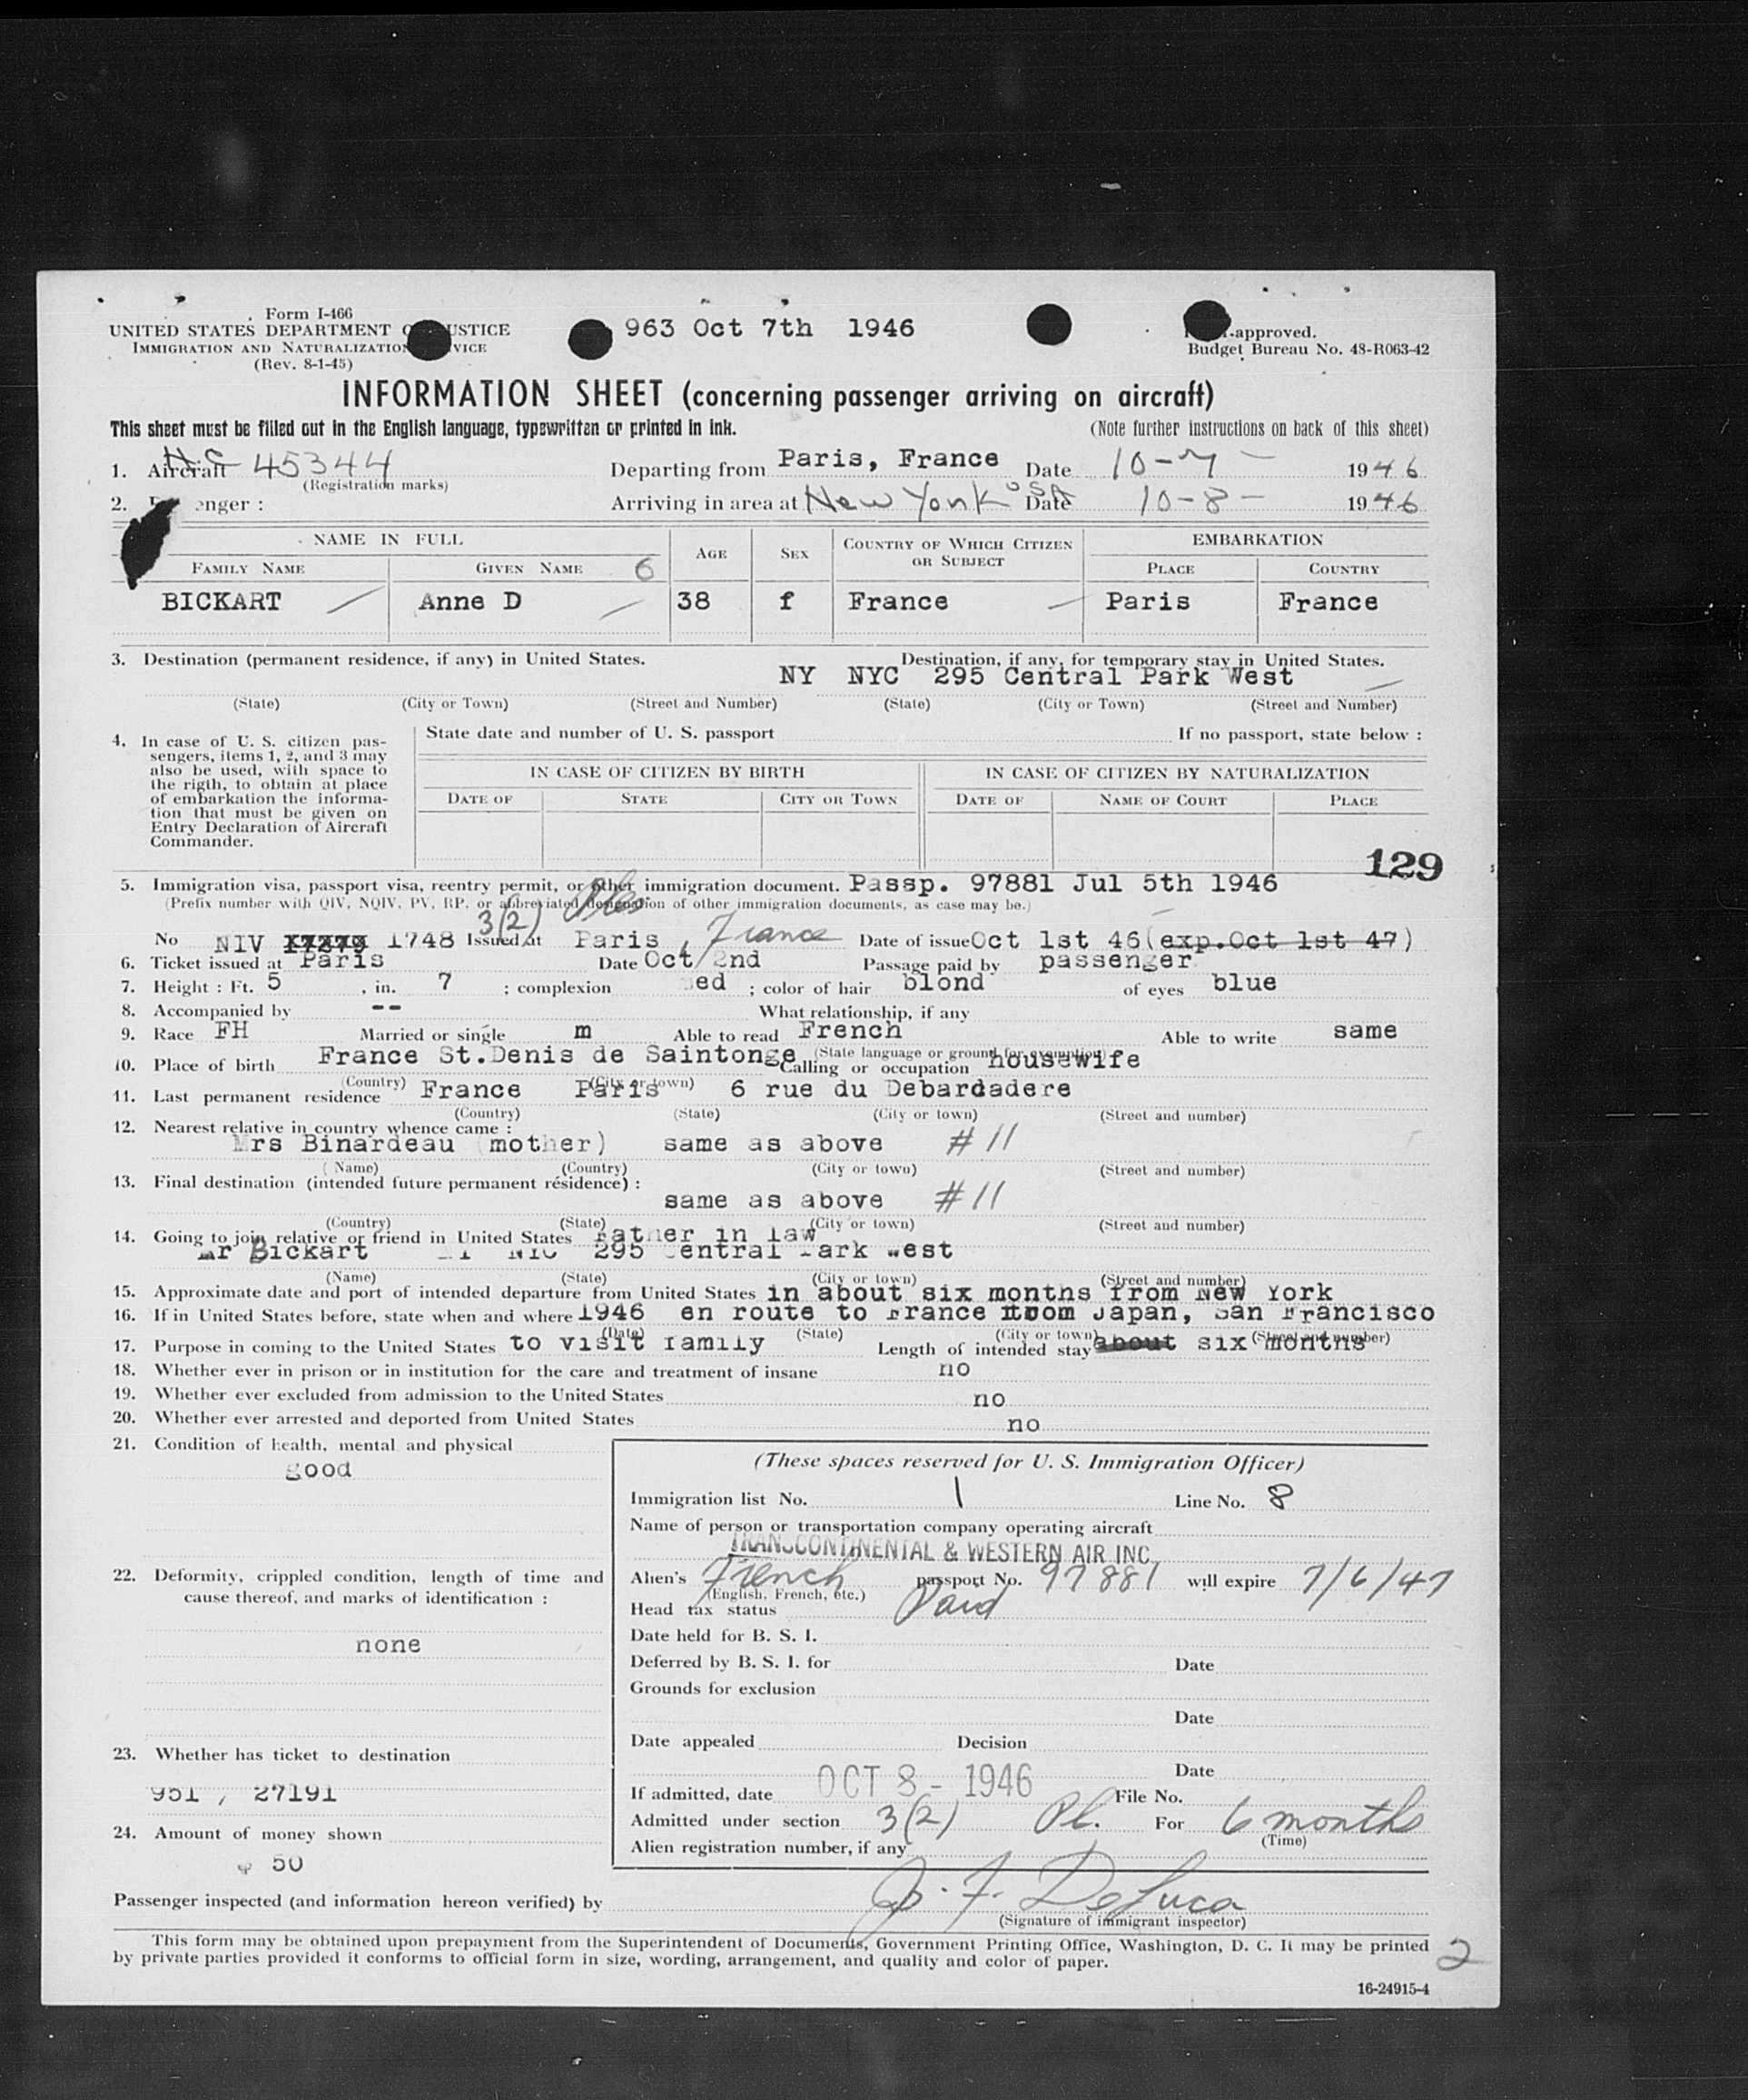 Form I-466
UNITED STATES DEPARTMENT USTICE
IMMIGRATION AND NATURALIZATION VICE
(Rev. 8-1-45)
963 Oct 7th 1946
approved.
Budget Bureau No. 43-R063-42
INFORMATION SHEET (concerning passenger arriving on aircraft)
This sheet must be filled out in the English language, typewritten or printed in ink. (Note further instructions on back of this sheet)
1. Aircraft 45344 Departing from Paris, France Date 10-7- 1946
(Registration marks)
2. enger : Arriving in area at New York USA Date 10-8- 1946
NAME IN FULL AGE SEX COUNTRY OF WHICH CITIZEN OR SUBJECT EMBARKATION
FAMILY NAME GIVEN NAME 6 PLACE COUNTRY
BICKART Anne D 38 f France Paris France
3. Destination (permanent residence, if any) in United States. Destination, if any, for temporary stay in United States.
NY NYC 295 Central Park West
(State) (City or Town) (Street and Number) (State) (City or Town) (Street and Number)
4. In case of U. S. citizen pas-
sengers, items 1, 2, and 3 may
also be used, with space to
the rigth, to obtain at place
of embarkation the informa-
tion that must be given on
Entry Declaration of Aircraft
Commander.
State date and number of U. S. passport If no passport, state below :
IN CASE OF CITIZEN BY BIRTH IN CASE OF CITIZEN BY NATURALIZATION
DATE OF STATE CITY OR TOWN DATE OF NAME OF COURT PLACE
129
5. Immigration visa, passport visa, reentry permit, or other immigration document. Passp. 97881 Jul 5th 1946
(Prefix number with QIV, NQIV, PV, RP, or abbreviated designation of other immigration documents, as case may be.)
3(2)
No NIV 1748 Issued at Paris, France Date of issue Oct 1st 46 (exp.Oct 1st 47)
6. Ticket issued at Paris Date Oct 2nd Passage paid by passenger
7. Height : Ft. 5 , in. 7 ; complexion ed ; color of hair blond of eyes blue
8. Accompanied by -- What relationship, if any
9. Race FH Married or single m Able to read French Able to write same
(State language or ground for exemption)
10. Place of birth France St.Denis de Saintonge Calling or occupation housewife
(Country) (City or town)
11. Last permanent residence France Paris 6 rue du Debarcadere
(Country) (State) (City or town) (Street and number)
12. Nearest relative in country whence came :
Mrs Binardeau (mother) same as above #11
(Name) (Country) (City or town) (Street and number)
13. Final destination (intended future permanent résidence) :
same as above #11
(Country) (State) (City or town) (Street and number)
14. Going to join relative or friend in United States father in law
Mr Bickart NY NYC 295 Central Park West
(Name) (State) (City or town) (Street and number)
15. Approximate date and port of intended departure from United States in about six months from New York
16. If in United States before, state when and where 1946 en route to France from Japan, San Francisco
(Date) (State) (City or town) (Street and number)
17. Purpose in coming to the United States to visit family Length of intended stay about six months
18. Whether ever in prison or in institution for the care and treatment of insane no
19. Whether ever excluded from admission to the United States no
20. Whether ever arrested and deported from United States no
21. Condition of health, mental and physical
good
22. Deformity, crippled condition, length of time and
cause thereof, and marks of identification :
none
23. Whether has ticket to destination
951 , 27191
24. Amount of money shown
$ 50
(These spaces reserved for U. S. Immigration Officer)
Immigration list No. 1 Line No. 8
Name of person or transportation company operating aircraft
TRANSCONTINENTAL & WESTERN AIR INC.
Alien's French passport No. 97881 will expire 7/6/47
(English, French, etc.)
Head tax status Paid
Date held for B. S. I.
Deferred by B. S. I. for Date
Grounds for exclusion
Date
Date appealed Decision
Date
If admitted, date OCT 8 - 1946 File No.
Admitted under section 3(2) Pl. For 6 months
(Time)
Alien registration number, if any
Passenger inspected (and information hereon verified) by J. F. DeLuca
(Signature of immigrant inspector)
This form may be obtained upon prepayment from the Superintendent of Documents, Government Printing Office, Washington, D. C. It may be printed
by private parties provided it conforms to official form in size, wording, arrangement, and quality and color of paper.
2
16-24915-4